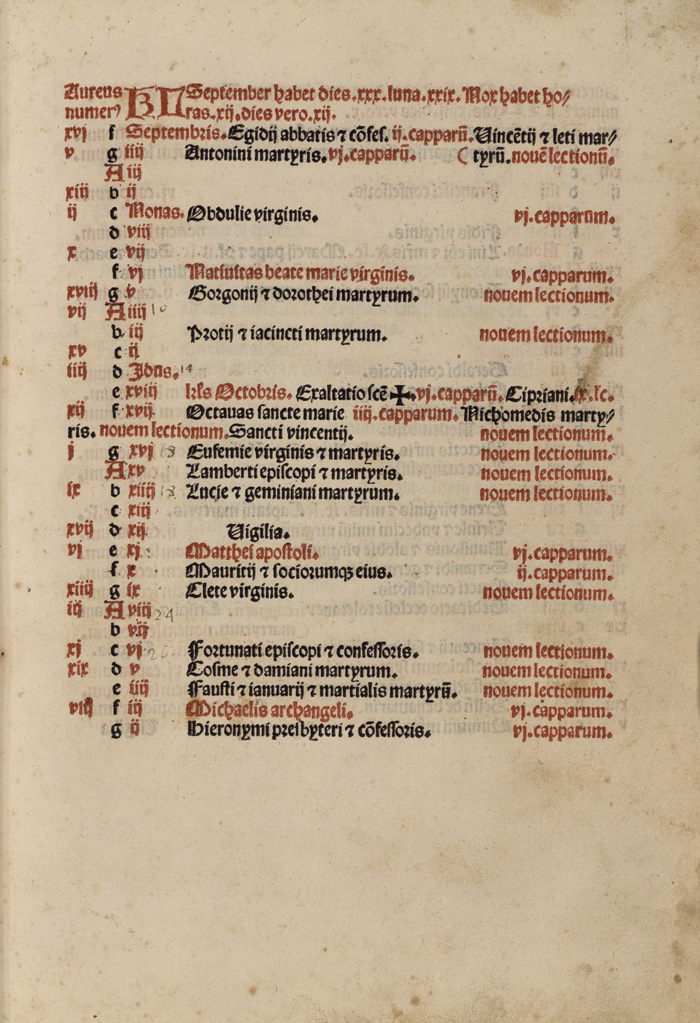 Aureus KL September habet dies.xxx.luna.xxix. Nox habet ho/
numer⁹ ras.xij.dies vero.xij.
xvj f Septembris. Egidij abbatis ⁊ cõfes. ij.capparũ. Uincẽtij ⁊ leti mar/
v g iiij Antonini martyris. vj.capparũ. ( tyrũ. nouẽ lectionũ.
A iij
xiij b ij
ij c Nonas. Obdulie virginis. vj.capparum.
d viij
x e vij
f vj Natiuitas beate marie virginis. vj.capparum.
xviij g v Gorgonij ⁊ dorothei martyrum. nouem lectionum.
vij A iiij 10
b iij Protij ⁊ iacincti martyrum. nouem lectionum.
xv c ij
iiij d Idus.
e xviij kl's Octobris. Exaltatio scẽ ✠. vj.capparũ. Cipriani. ix.lc.
xij f xvij Octauas sancte marie iiij.capparum. Nichomedis marty/
ris. nouem lectionum. Sancti vincentij. nouem lectionum.
j g xvj Eufemie virginis ⁊ martyris. nouem lectionum.
A xv Lamberti episcopi ⁊ martyris. nouem lectionum.
ix b xiiij 18 Lucie ⁊ geminiani martyrum. nouem lectionum.
c xiij
xvij d xij Uigilia.
vj e xj Matthei apostoli. vj.capparum.
f x Mauritij ⁊ sociorumqʒ eius. ij.capparum.
xiiij g ix Clete virginis. nouem lectionum.
iij A viij 24
b vij
xj c vj Fortunati episcopi ⁊ confessoris. nouem lectionum.
xix d v Cosme ⁊ damiani martyrum. nouem lectionum.
e iiij Fausti ⁊ ianuarij ⁊ martialis martyrũ. nouem lectionum.
viij f iij Michaelis archangeli. vj.capparum.
g ij Hieronymi presbyteri ⁊ cõfessoris. vj.capparum.